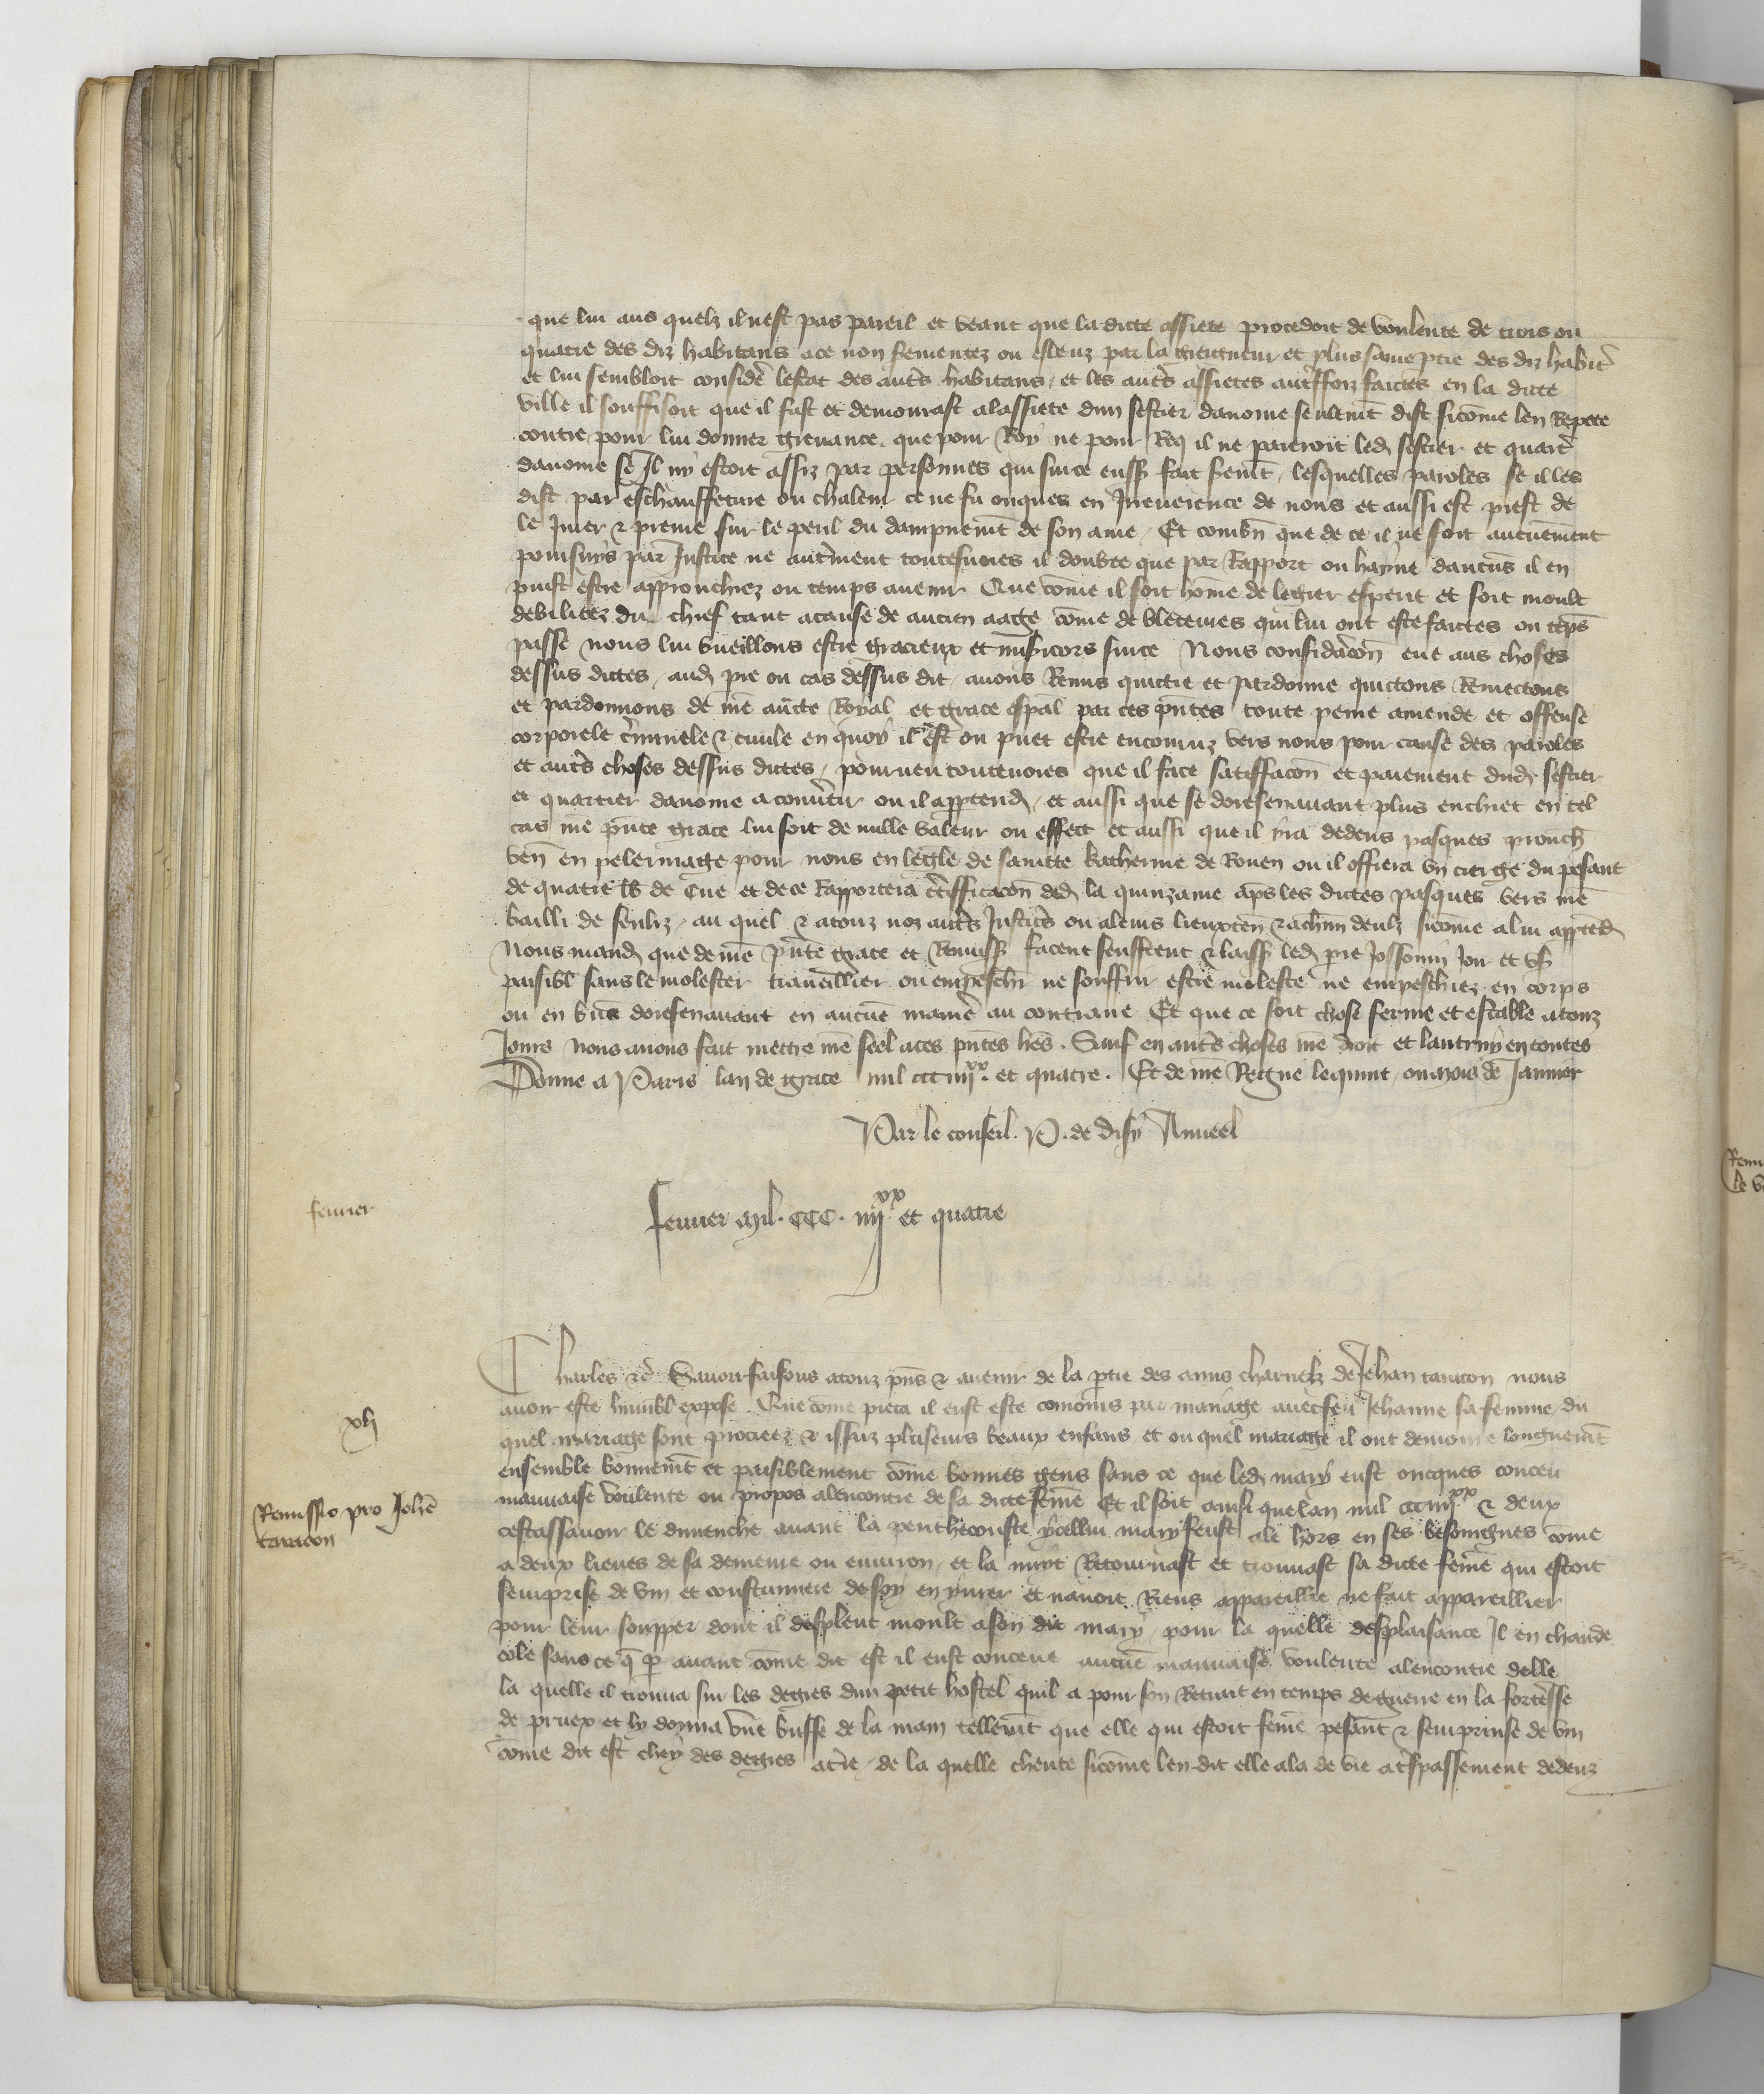 que lui aus quelz il nest pas pareil et veant que la dicte assiete procedoit de voulente de trois ou
quatre des diz habitans a ce non sermentez ou esleuz par la greigneur et plus saine ptie des diz habit
et lui sembloit consider lestat des autrs habitans et les autrs assietes autresfoiz faictes en la dicte
ville il souffisoit que il fust et demourast a lassiete dun sestier davoine seulemt dist sicome len Repete
contre pour lui donner grevance que pour Roy ne pour Roy il ne paieroit led sestier et quart
davoine se Il ny estoit assiz par personnes qui sur ce eussent fait sermt lesquelles paroles se il les
dist par eschauffeture ou chaleur ce ne fu onques en Inreverence de nous et aussi est prest de
le Jurer z prenre sur le peril du dampnemt de son ame Et combn que de ce il ne soit aucunement
poursuys par Justice ne autrement toutesvoies il doubte que par Rapport ou hayne daucus il en
puist estre approuchiez ou temps avenir Que come il soit home de legier esperit et soit moult
debilitez du chief tant a cause de ancien aage come de bleceures qui lui ont este faictes ou teps
passe nous lui vueillons estre gracieux et misicors sur ce Nous consideracon eue aus choses
dessus dictes aud pre ou cas dessus dit avons Remis quictie et pardonne quictons Remectons
et pardonnons de nre aucte Royal et grace espal par ces pntes toute peine amende et offense
corporele criminele z civile en quoy il est ou puet estre encouruz vers nous pour cause des paroles
et autrs choses dessus dictes pourveu toutevoies que il face satiffacon et paiement dud sestier
et quartier davoine a convertir ou il apptend et aussi que se doresenavant plus enchiet en tel
cas nre pnte grace lui soit de nulle valeur ou effect et aussi que il yra dedens pasques prouch
ven en pelerinage pour nous en legle de saincte katherine de Rouen ou il offrera un cierge du pesant
de quatre lb de cire et de ce Rapportera certifficacon ded la quinzaine aps les dictes pasques vers nre
bailli de senliz au quel z a touz noz autrs Justicrs ou a leurs lieuxten z a chun deulx sicome a lui apptend
Nous mand que de nre pnte grace et Remiss facent seuffrent z laiss led pre Josson Jor et us
paisibl sans le molester travaillier ou empeschr ne souffrir estre moleste ne empeschiez en corps
ou en biens doresenavant en aucune maniere au contraire Et que ce soit chose ferme et estable a touz
Jours Nous avons fait mettre nre seel a ces pntes lres. Sauf en autrs choses nre droit et lautruy en toutes
Donne a Paris lan de grace mil ccc iiij xx. et quatre. Et de nre Regne le quint ou mois de Janvier
Par le conseil. P. de disy Anueel
fevrier
fevrier mil. CCC. iiij xx et quatre
Charles zc Savoir faisons a touz pns z avenir de la ptie des amis charnelz de Jehan tarteon nous
avoir este humbl expose Que come pieca il eust este conioins par mariage avec feu Jehanne sa femme du
xlj
quel mariage sont procreez z issuz pluseurs beaux enfans et ou quel mariage il ont demoure longuemt
ensemble bonnemt et paisiblement come bonnes gens sans ce que led mary eust oncques conceu
mauvaise voulente ou propos alencontre de sa dicte feme Et il soit ainsi que lan mil ccc iiij xx z deux
Remissio pro Johe
tarteon
cestassavoir le dimenche avant la penthecouste ycellui mary feust ale hors en ses besoingnes come
a deux lieues de sa demeure ou environ et la nuyt Retournast et trouvast sa dicte feme qui estoit
seurprise de vin et coustumiere de soy enyvrer et navoit Riens appareillie ne fait appareillier
pour leur soupper dont il desplent moult a son dit mary pour la quelle desplaisance Il en chaude
cole sans ce q p avant come dit est il eust conceue aucune mauvaise voulente alencontre delle
la quelle il trouva sur les degres dun petit hostel quil a pour son Retrait en temps de guerre en la forteresse
de pruex et ly donna une buffe de la main tellemt que elle qui estoit feme pesant z seurprinse de vin
come dit est chey des degres a terre de la quelle cheute sicome len dit elle ala de vie a trespassement dedenz